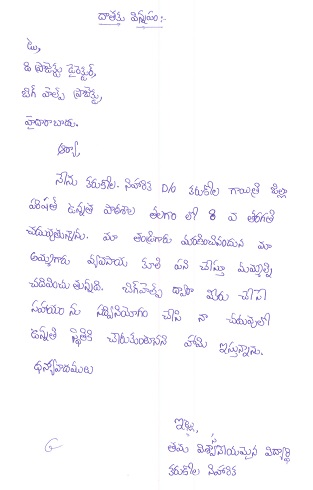 దాతకు విన్నపం:-
టు,
ది ప్రాజెక్టు డైరెక్టర్,
బిగ్ హెల్ప్ ప్రాజెక్టు,
హైదరాబాదు.
ఆర్యా,
నేను కరుకోల నిహారిక D/o కరుకోల గాయత్రి జిల్లా
పరిషత్ ఉన్నత పాఠశాల తలగాం లో 8 వ తరగతి
చదువుతున్నాను. మా తండ్రిగారు మరణించినందున మా
అమ్మగారు వ్యవసాయ కూలి పని చేస్తూ మమ్మల్ని
చదివిస్తున్నది. బిగ్‌హెల్ప్ ద్వారా మీరు చేసే
సహాయం ను సద్వినియోగం చేసి నా చదువులో
ఉన్నత స్థితికి చేరుకుంటానని హామీ ఇస్తున్నాను.
ధన్యవాదములు
ఇట్లు,
తమ విశ్వసనీయమైన విద్యార్థి
కరుకోల నిహారిక